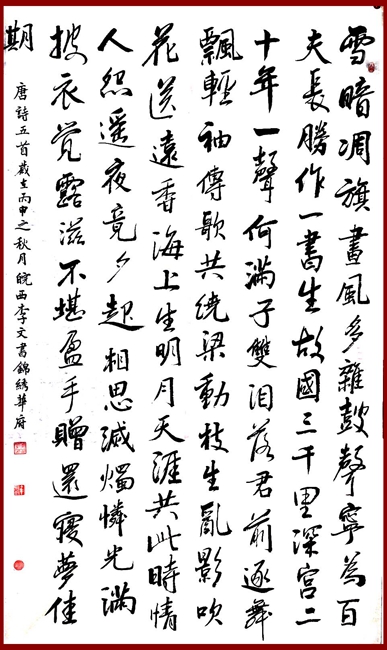 雪暗凋旗畫風多雜鼓聲寧為百
夫長勝作一書生故國三千里深宮二
十年一聲何滿子雙泪落君前逐舞
飄輕袖傳歌共繞梁動枝生亂影吹
花送遠香海上生明月天涯共此時情
人怨遥夜竟夕起相思滅燭憐光滿
披衣覺露滋不堪盈手贈還寢夢佳
期
唐詩五首歲在丙申之秋月皖西李文書錦綉華府